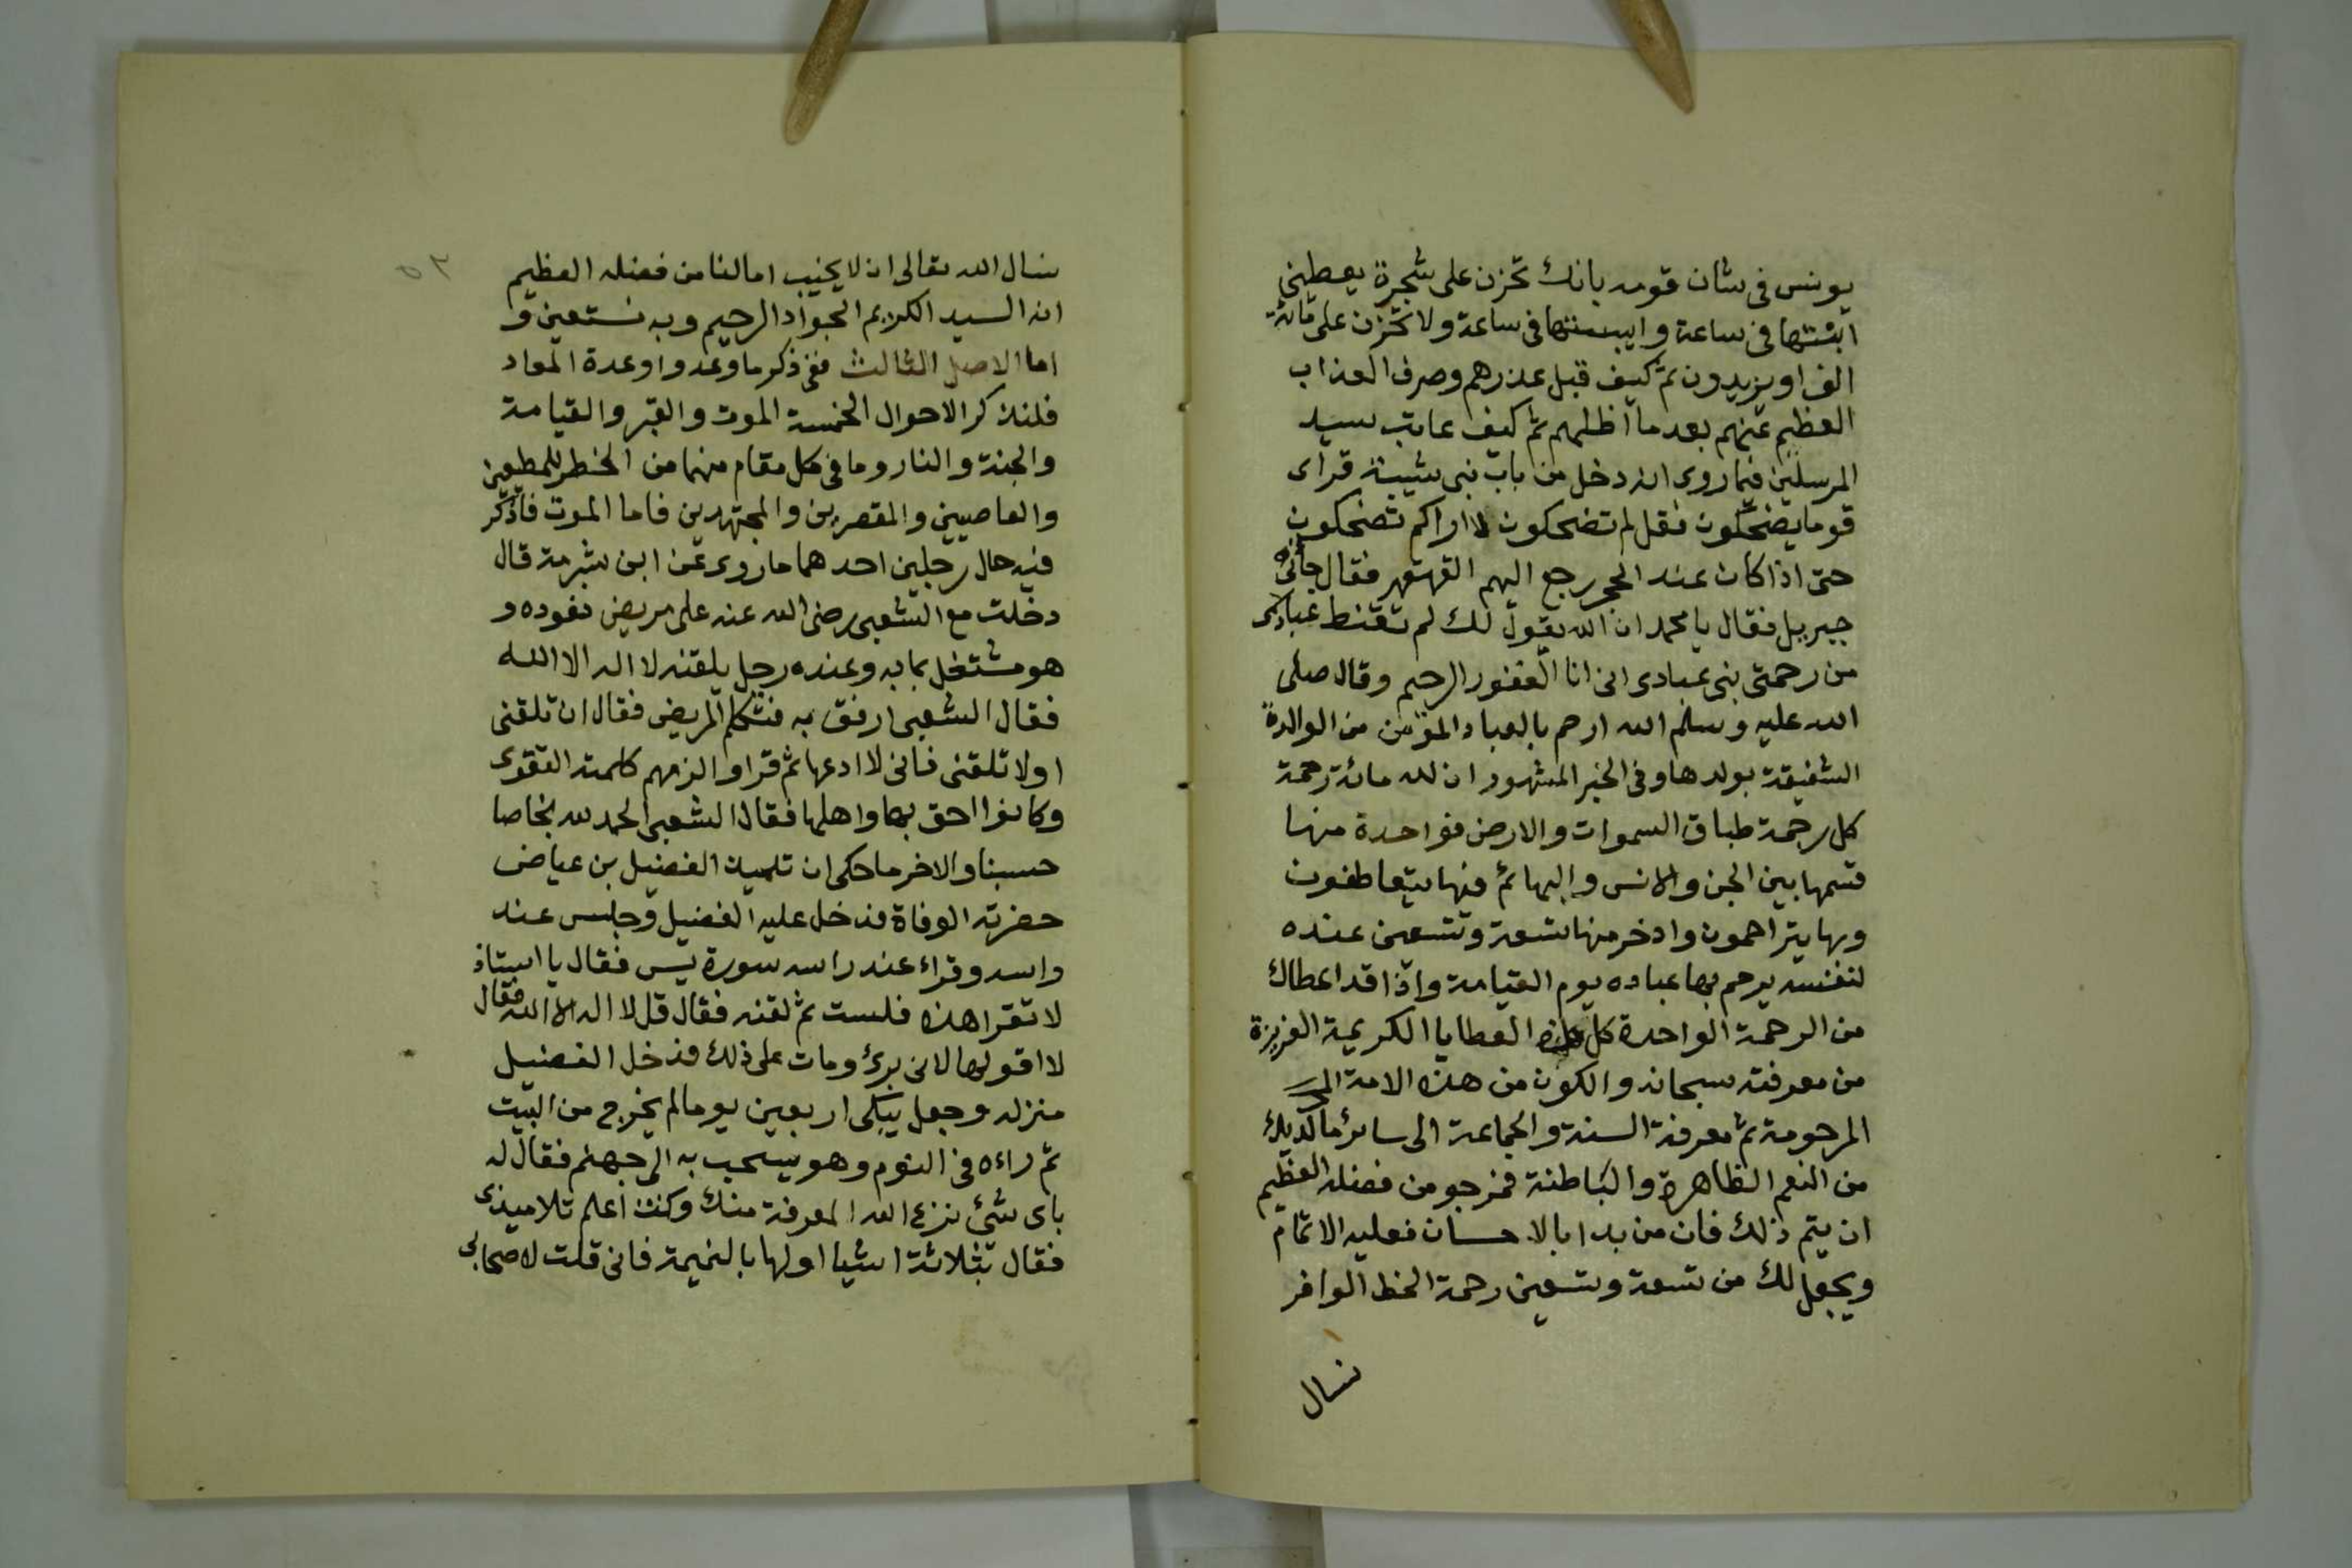 يونس في شان قومه بانك تحزن على شجرة يعطيني
انبتتها في ساعة وايبستها في ساعة ولا تحزن على مائة
الف او يزيدون ثم كيف قبل عذرهم وصرف العذاب
العظيم عنهم بعد ما اظلهم ثم كيف عاتب سيد
المرسلين فيما روى انه دخل من باب بني شيبة فراى
قوما يضحكون فقل لم تضحكون لا اراكم تضحكون
حتى اذا كان عند الحجر رجع اليهم القهقهر فقال جائني
جبريل فقال يا محمد ان الله يقول لك لم تقنط عبادى
من رحمتي نبى عبادى انى انا الغفور الرحيم وقال صلى
الله عليه وسلم الله ارحم بالعباد المؤمن من الوالدة
الشفيقة بولدها وفي الخبر المشهور ان لله مائة رحمة
كل رحمة طباق السموات والارض فواحدة منها
قسمها بين الجن والانس والبهائم فبها يتعاطفون
وبها يتراحمون وادخر منها تسعة وتسعين عنده
لنفسه يرحم بها عباده يوم القيامة واذا قد اعطاك
من الرحمة الواحدة كل هذه العطايا الكريمة العزيزة
من معرفته سبحانه والكون من هذه الامة
المرحومة ثم معرفة السنة والجماعة الى سائر ما لديك
من النعم الظاهرة والباطنة فنرجو من فضله العظيم
ان يتم ذلك فان من بدا بالاحسان فعليه الاتمام
ويجعل لك من تسعة وتسعين رحمة الحظ الوافر
نسال
٥٣
نسال الله تعالى ان لا يخيب امالنا من فضله العظيم
انه السيد الكريم الجواد الرحيم وبه نستعين و
اما الاصل الثالث ففى ذكر ما وعد واوعدة المعاد
فلنذكر الاحوال الخمسة الموت والقبر والقيامة
والجنة والنار وما في كل مقام منها من الخطر للمطيعين
والعاصيين والمقصرين والمجتهدين فاما الموت فاذكر
فيه حال رجلين احدهما ما روى عن ابن شبرمة قال
دخلت مع الشعبى رضى الله عنه على مريض نعوده و
هو مشتغل بما به وعنده رجل يلقنه لا اله الا الله
فقال الشعبى ارفق به فتكلم المريض فقال ان تلقنى
او لا تلقنى فانى لا ادعها ثم قرا والزمهم كلمة التقوى
وكانوا احق بها واهلها فقال الشعبى الحمد لله نجا صا
حسبنا والاخر ما حكى ان تلميذ الفضيل بن عياض
حضرته الوفاة فدخل عليه الفضيل وجلس عند
راسه وقراء عند راسه سورة يس فقال يا استاذ
لا تقرا هذه فلست ثم لقنه فقال قل لا اله الا الله فقال
لا اقولها لانى برئ ومات على ذلك فدخل الفضيل
منزله وجعل يبكى اربعين يوما لم يخرج من البيت
ثم راءه في النوم وهو يسحب به الى جهنم فقال له
باى شئ نزع الله المعرفة منك وكنت اعلم تلاميذى
فقال بثلاثة اشيا اولها بالنميمة فانى قلت لاصحابى